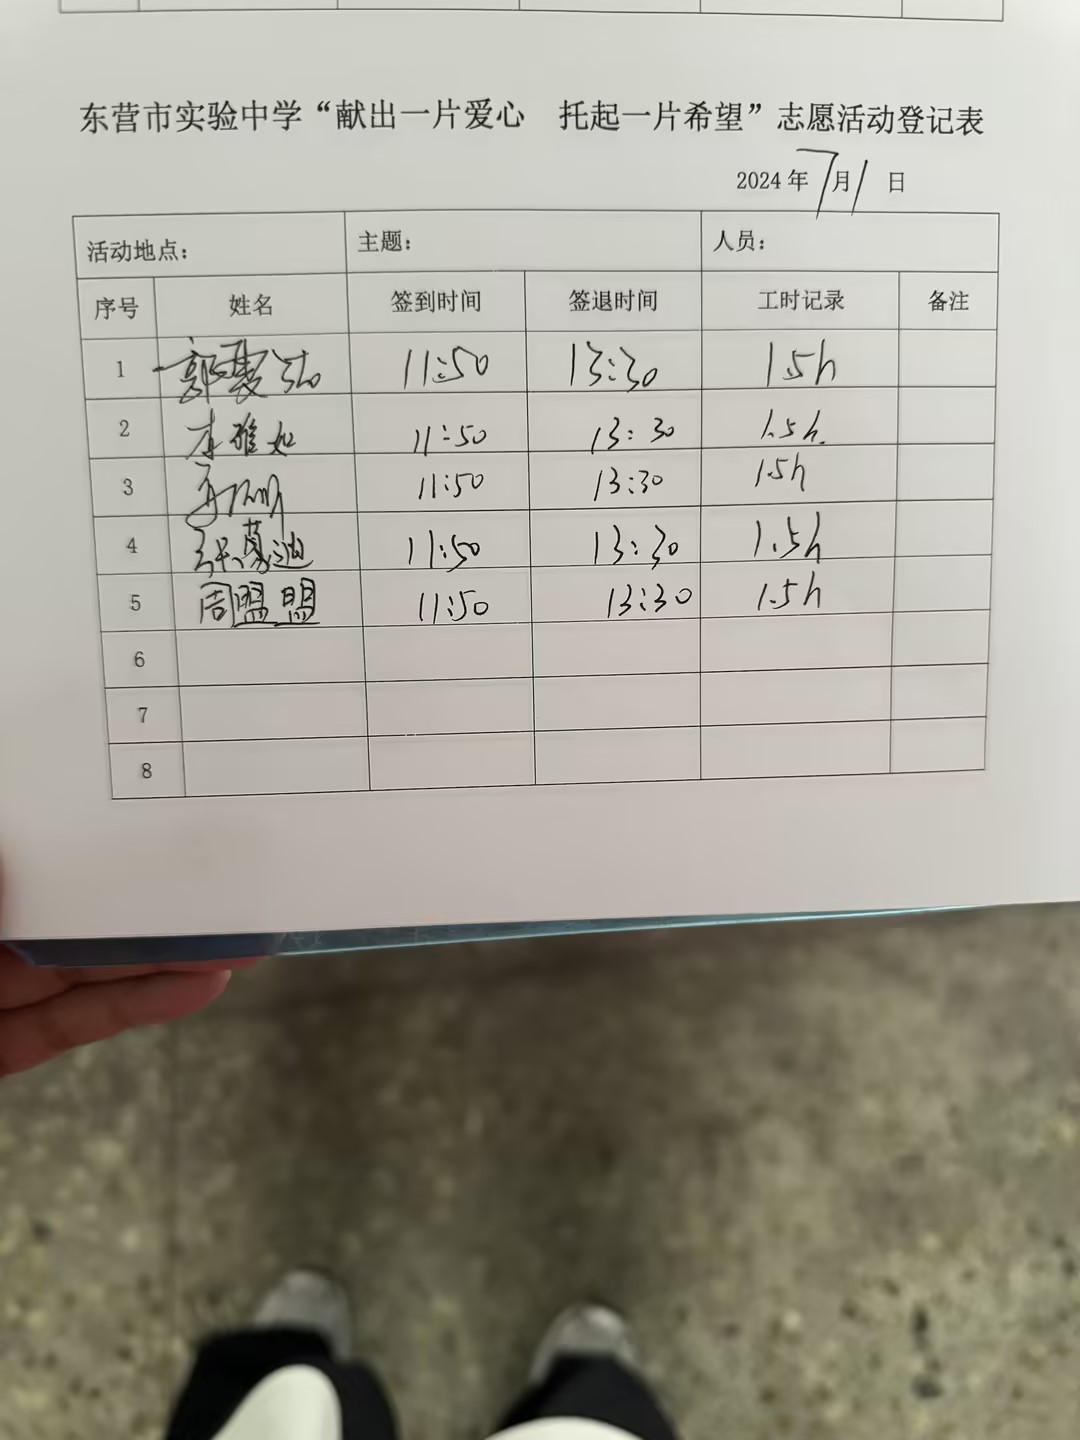 东营市实验中学“献出一片爱心 托起一片希望”志愿活动登记表
2024年7月1日
活动地点： 主题： 人员：
序号 姓名 签到时间 签退时间 工时记录 备注
1 11:50 13:30 1.5h
2 李雅如 11:50 13:30 1.5h.
3 11:50 13:30 1.5h
4 张蒙迪 11:50 13:30 1.5h
5 周盟盟 11:50 13:30 1.5h
6
7
8